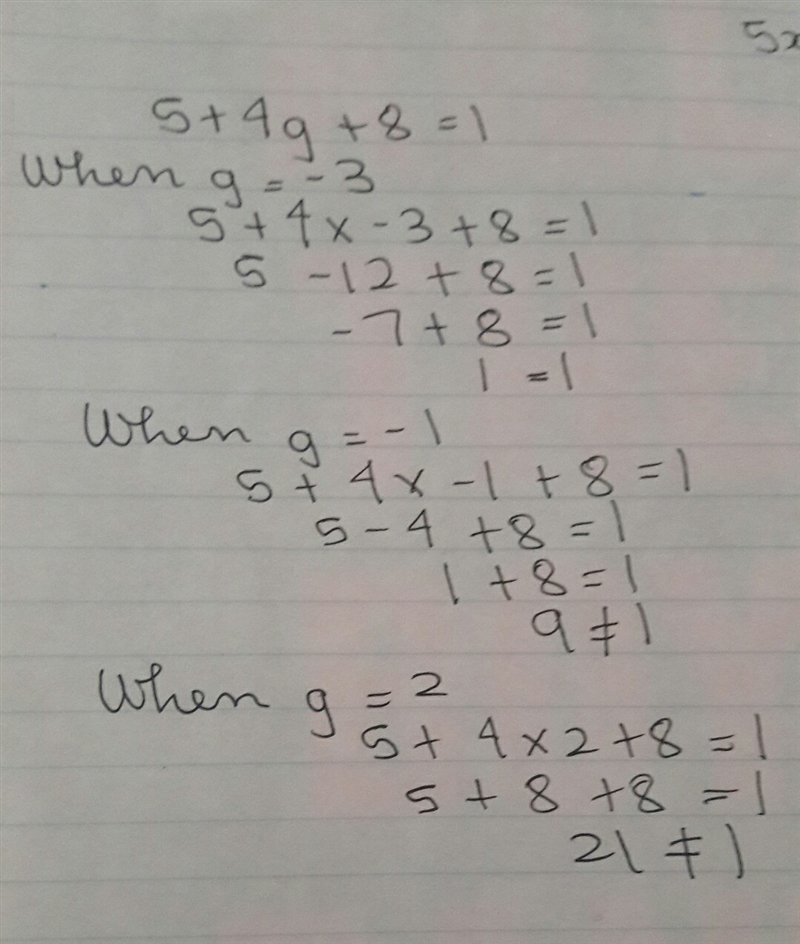 5x
5+4g+8=1
When g=-3
5+4x-3+8=1
5 -12+8=1
-7+8=1
1=1
When g=-1
5+4x-1+8=1
5-4+8=1
1+8=1
9≠1
When g=2
5+4×2+8=1
5+8+8=1
21≠1